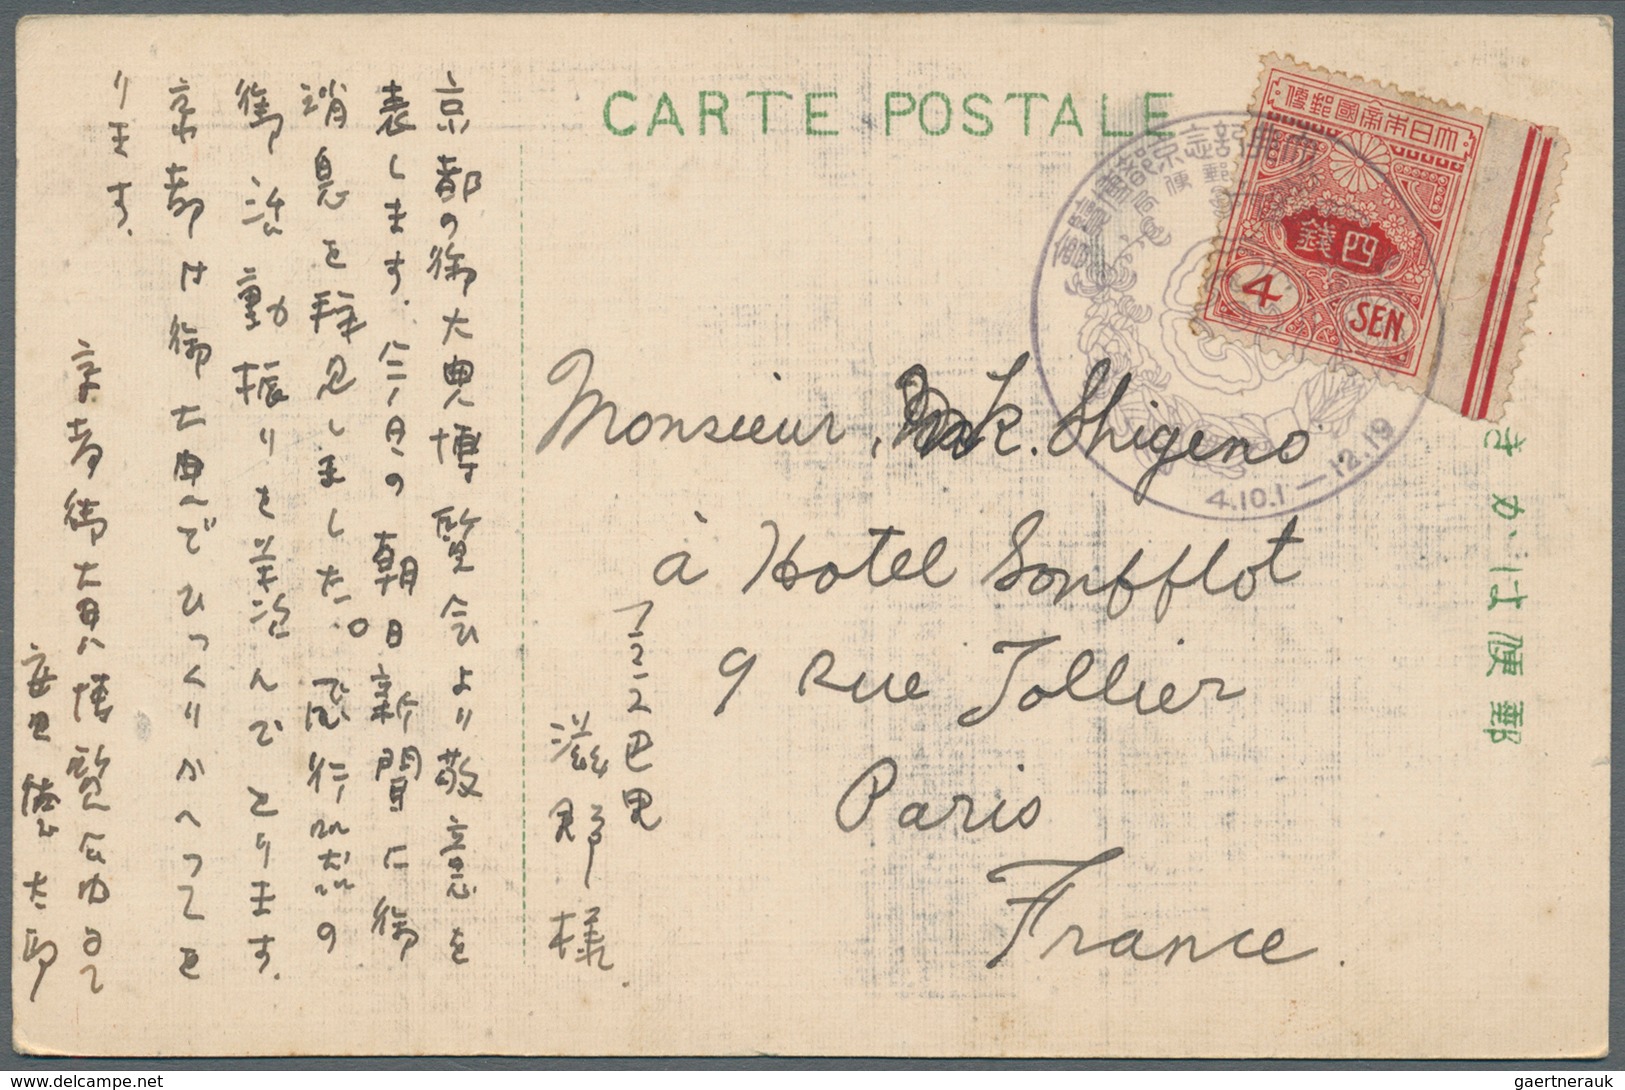 CARTE POSTALE
大日本帝國郵便
四錢
4
SEN.
4.10.1—12.19
きかは便郵
Monsieur, K. Shigeno
à Hotel Soufflot
9 Rue Tollier
Paris
France.
フランス巴里
滋野様.
京都の御大典博覧会より敬意を
表します.今日の朝日新聞に御
消息を拝見しました。飛行界の
御活動振りを喜んでとります.
京都は御大典でひっくりかへってを
ります.
京都御大典博覧会内にて
徳太郎
gaertnerauk